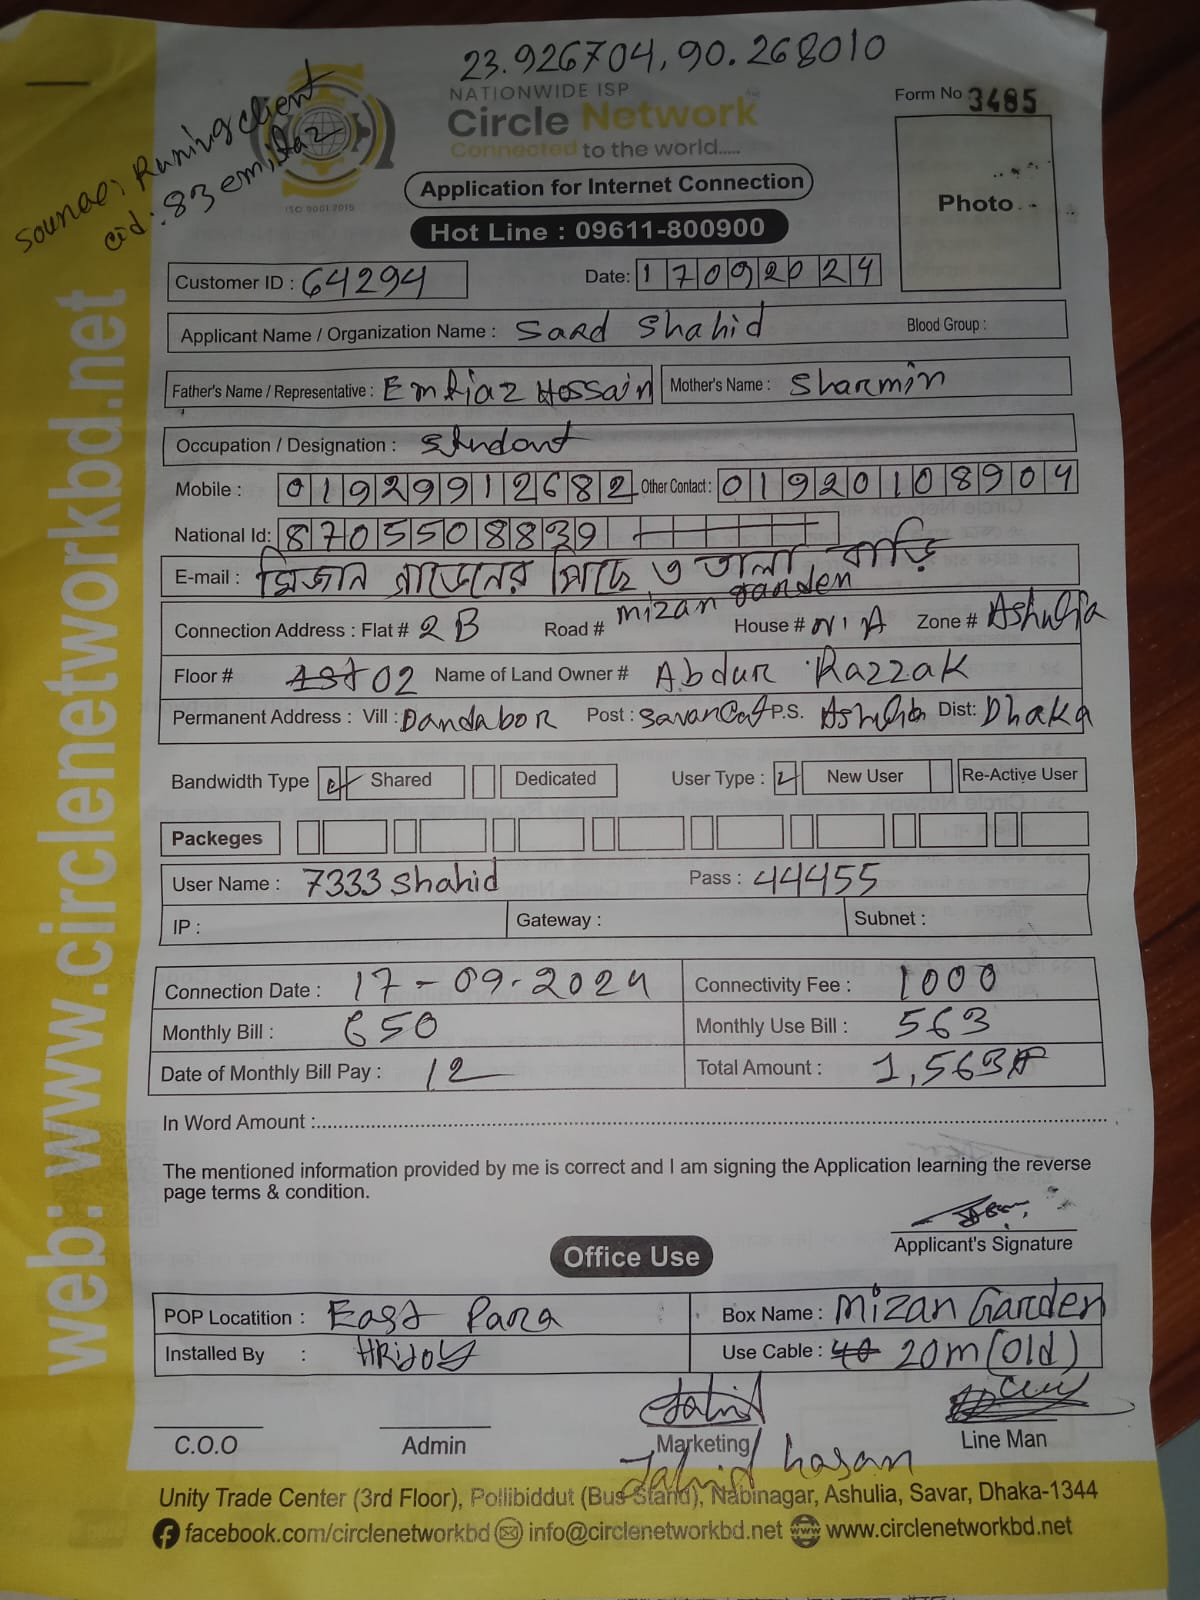 23.926704, 90.268010
Sounae: Runing client
cid: 83 emitaz
NATIONWIDE ISP
Circle Network
Connected to the world.....
ISO 9001:2015
Form No 3485
Photo
Application for Internet Connection
Hot Line : 09611-800900
Customer ID : 64294 Date: 17092024
Applicant Name / Organization Name : Saad Shahid Blood Group :
Father's Name / Representative : Emtiaz Hossain Mother's Name : Sharmin
Occupation / Designation : Student
Mobile : 01929912682 Other Contact : 01920108904
National Id: 8705508839
E-mail : মিজান গার্ডেনের পিছে ৩ তালা বাড়ি
Connection Address : Flat # 2B Road # mizan garden House # N/A Zone # Ashulia
Floor # 1st 02 Name of Land Owner # Abdur Razzak
Permanent Address : Vill : Dandabor Post : SavarCat P.S. Ashulia Dist: Dhaka
Bandwidth Type Shared Dedicated User Type : New User Re-Active User
Packeges
User Name : 7333 Shahid Pass : 44455
IP : Gateway : Subnet :
Connection Date : 17-09-2024 Connectivity Fee : 1000
Monthly Bill : 650 Monthly Use Bill : 563
Date of Monthly Bill Pay : 12 Total Amount : 1,563
In Word Amount :
The mentioned information provided by me is correct and I am signing the Application learning the reverse
page terms & condition.
Applicant's Signature
Office Use
POP Locatition : East Para Box Name : Mizan Garden
Installed By : HRIDOY Use Cable : 40 20m (old)
Jahid
C.O.O Admin Marketing Line Man
Jahid hasan
Unity Trade Center (3rd Floor), Pollibiddut (Bus Stand), Nabinagar, Ashulia, Savar, Dhaka-1344
facebook.com/circlenetworkbd info@circlenetworkbd.net www.circlenetworkbd.net
web: www.circlenetworkbd.net